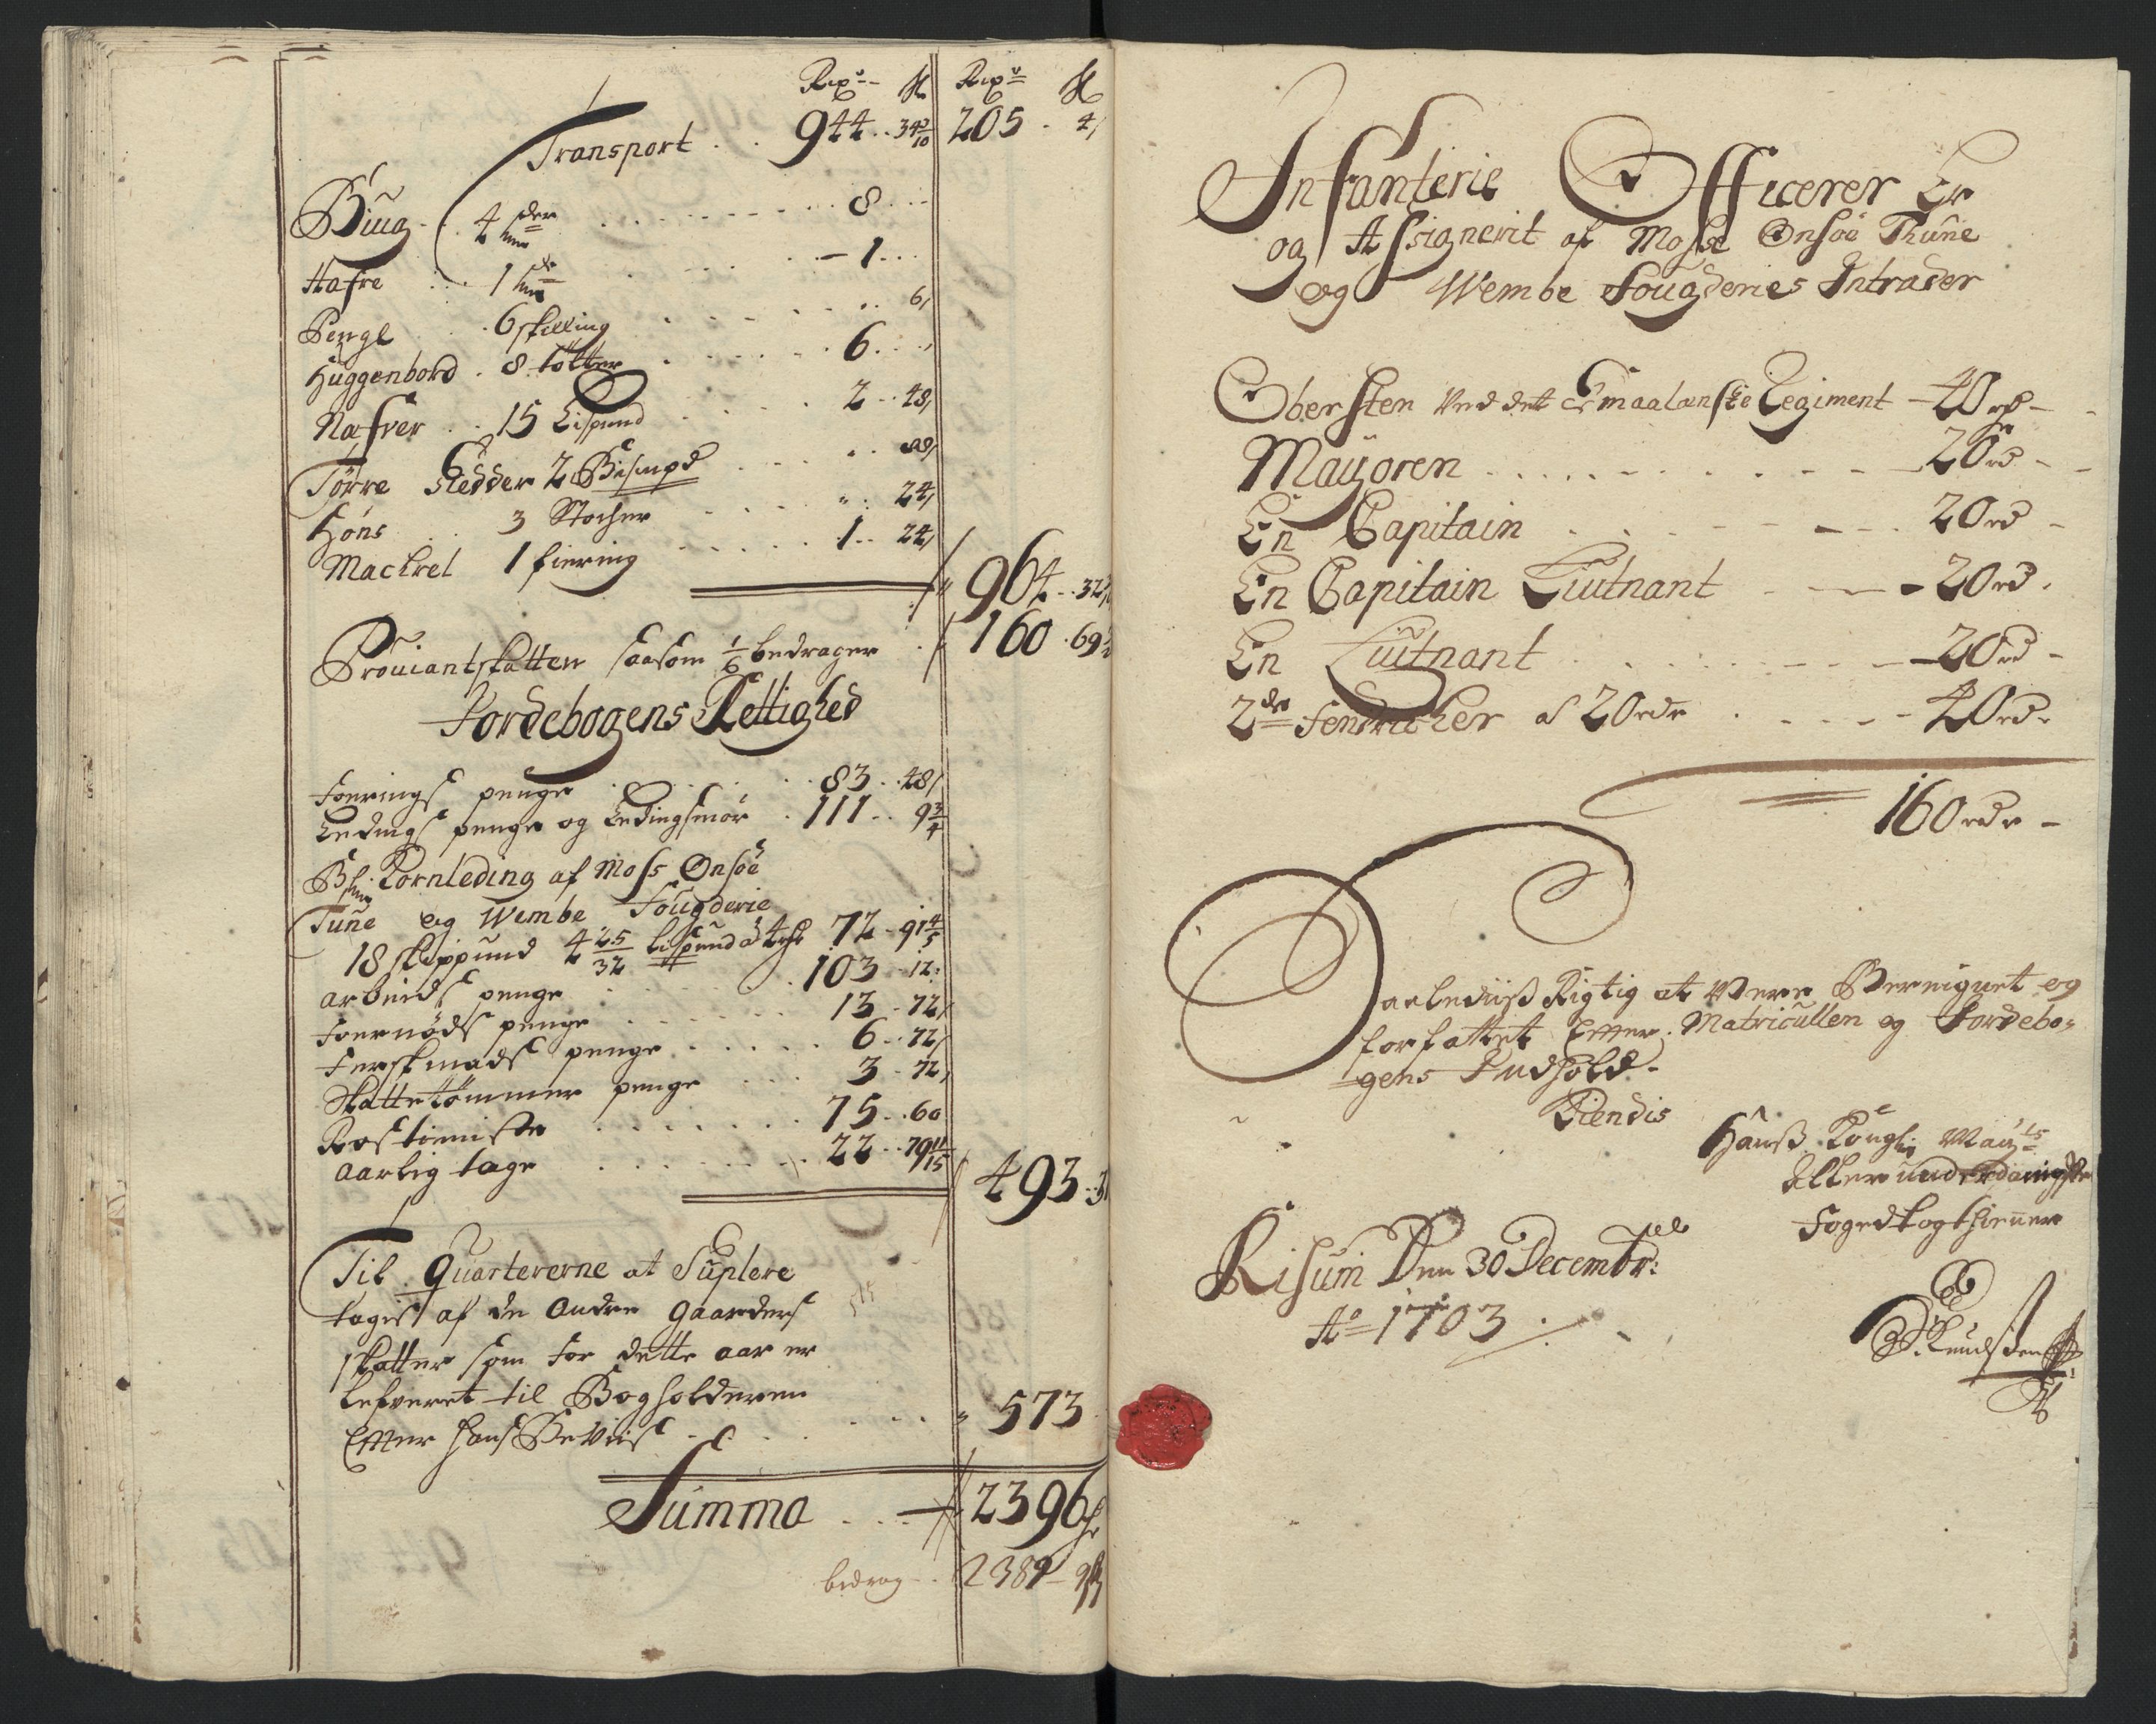 Rixdr ß Rixdr ß
Transport 944 .. 34 2/10 205 . 4
Biug 4 tder 8
Hafre 1 1
Penge 6 skilling 6
Huggenbord 8 tolter 6
Næfver 15 Lispund 2 .. 48
Tørre Gedder 2 Bismpd
Høns 3 Stocher 24
Mackrel 1 fiering 1 .. 24
964 .. 32
Prouiantskatten saasom 1/6 bedrager 160 . 69
Jordebogens Rettighed
Foerings penge 83 .. 48
Ledings penge og Ledingsmør 111 .. 9 3/4
Kornleding af Moss Onsøe
Tune og Wembe Fougderie
18 skippund 4 25/32 Lispund a 4 72 - 91 4/5
arbeids penge 103 .. 12
Foernøds penge 13 .. 72
Ferskmads penge 6 .. 72
Skattetømmer penge 3 - 72
Rostieniste 75 .. 60
aarlig tage 22 .. 79 11/15
493
Til Quartererne at Suplere
tagis af de andre gaarders
skatter som for dette aar er
lefveret til Bogholderen
Efter hans Beviis 573
Summa 2396
bedrog 2389
Infanterie Officerer Er
og Assignerit af Mosse Onsøe Thune
og Wembe Fougderies Intrader
Obersten Ved det Smaalenske Regiment 40 rd
Mayoren 20 rd
En Capitain 20 rd
En Capitain Liutnant 20 rd
En Liutnant 20 rd
2de Fendricher a 20 rdr 40 rdr
160 rdr
Saaledis Rigtig at Were Beregnet og
forfattet Efter Matricullen og Jordebo=
gens Indhold.
Kiendis
Hans Kongl: May:ts
Allerunderdanigste
Foged
Risum Den 30 Decembr:
Ao 1703
Knudsen